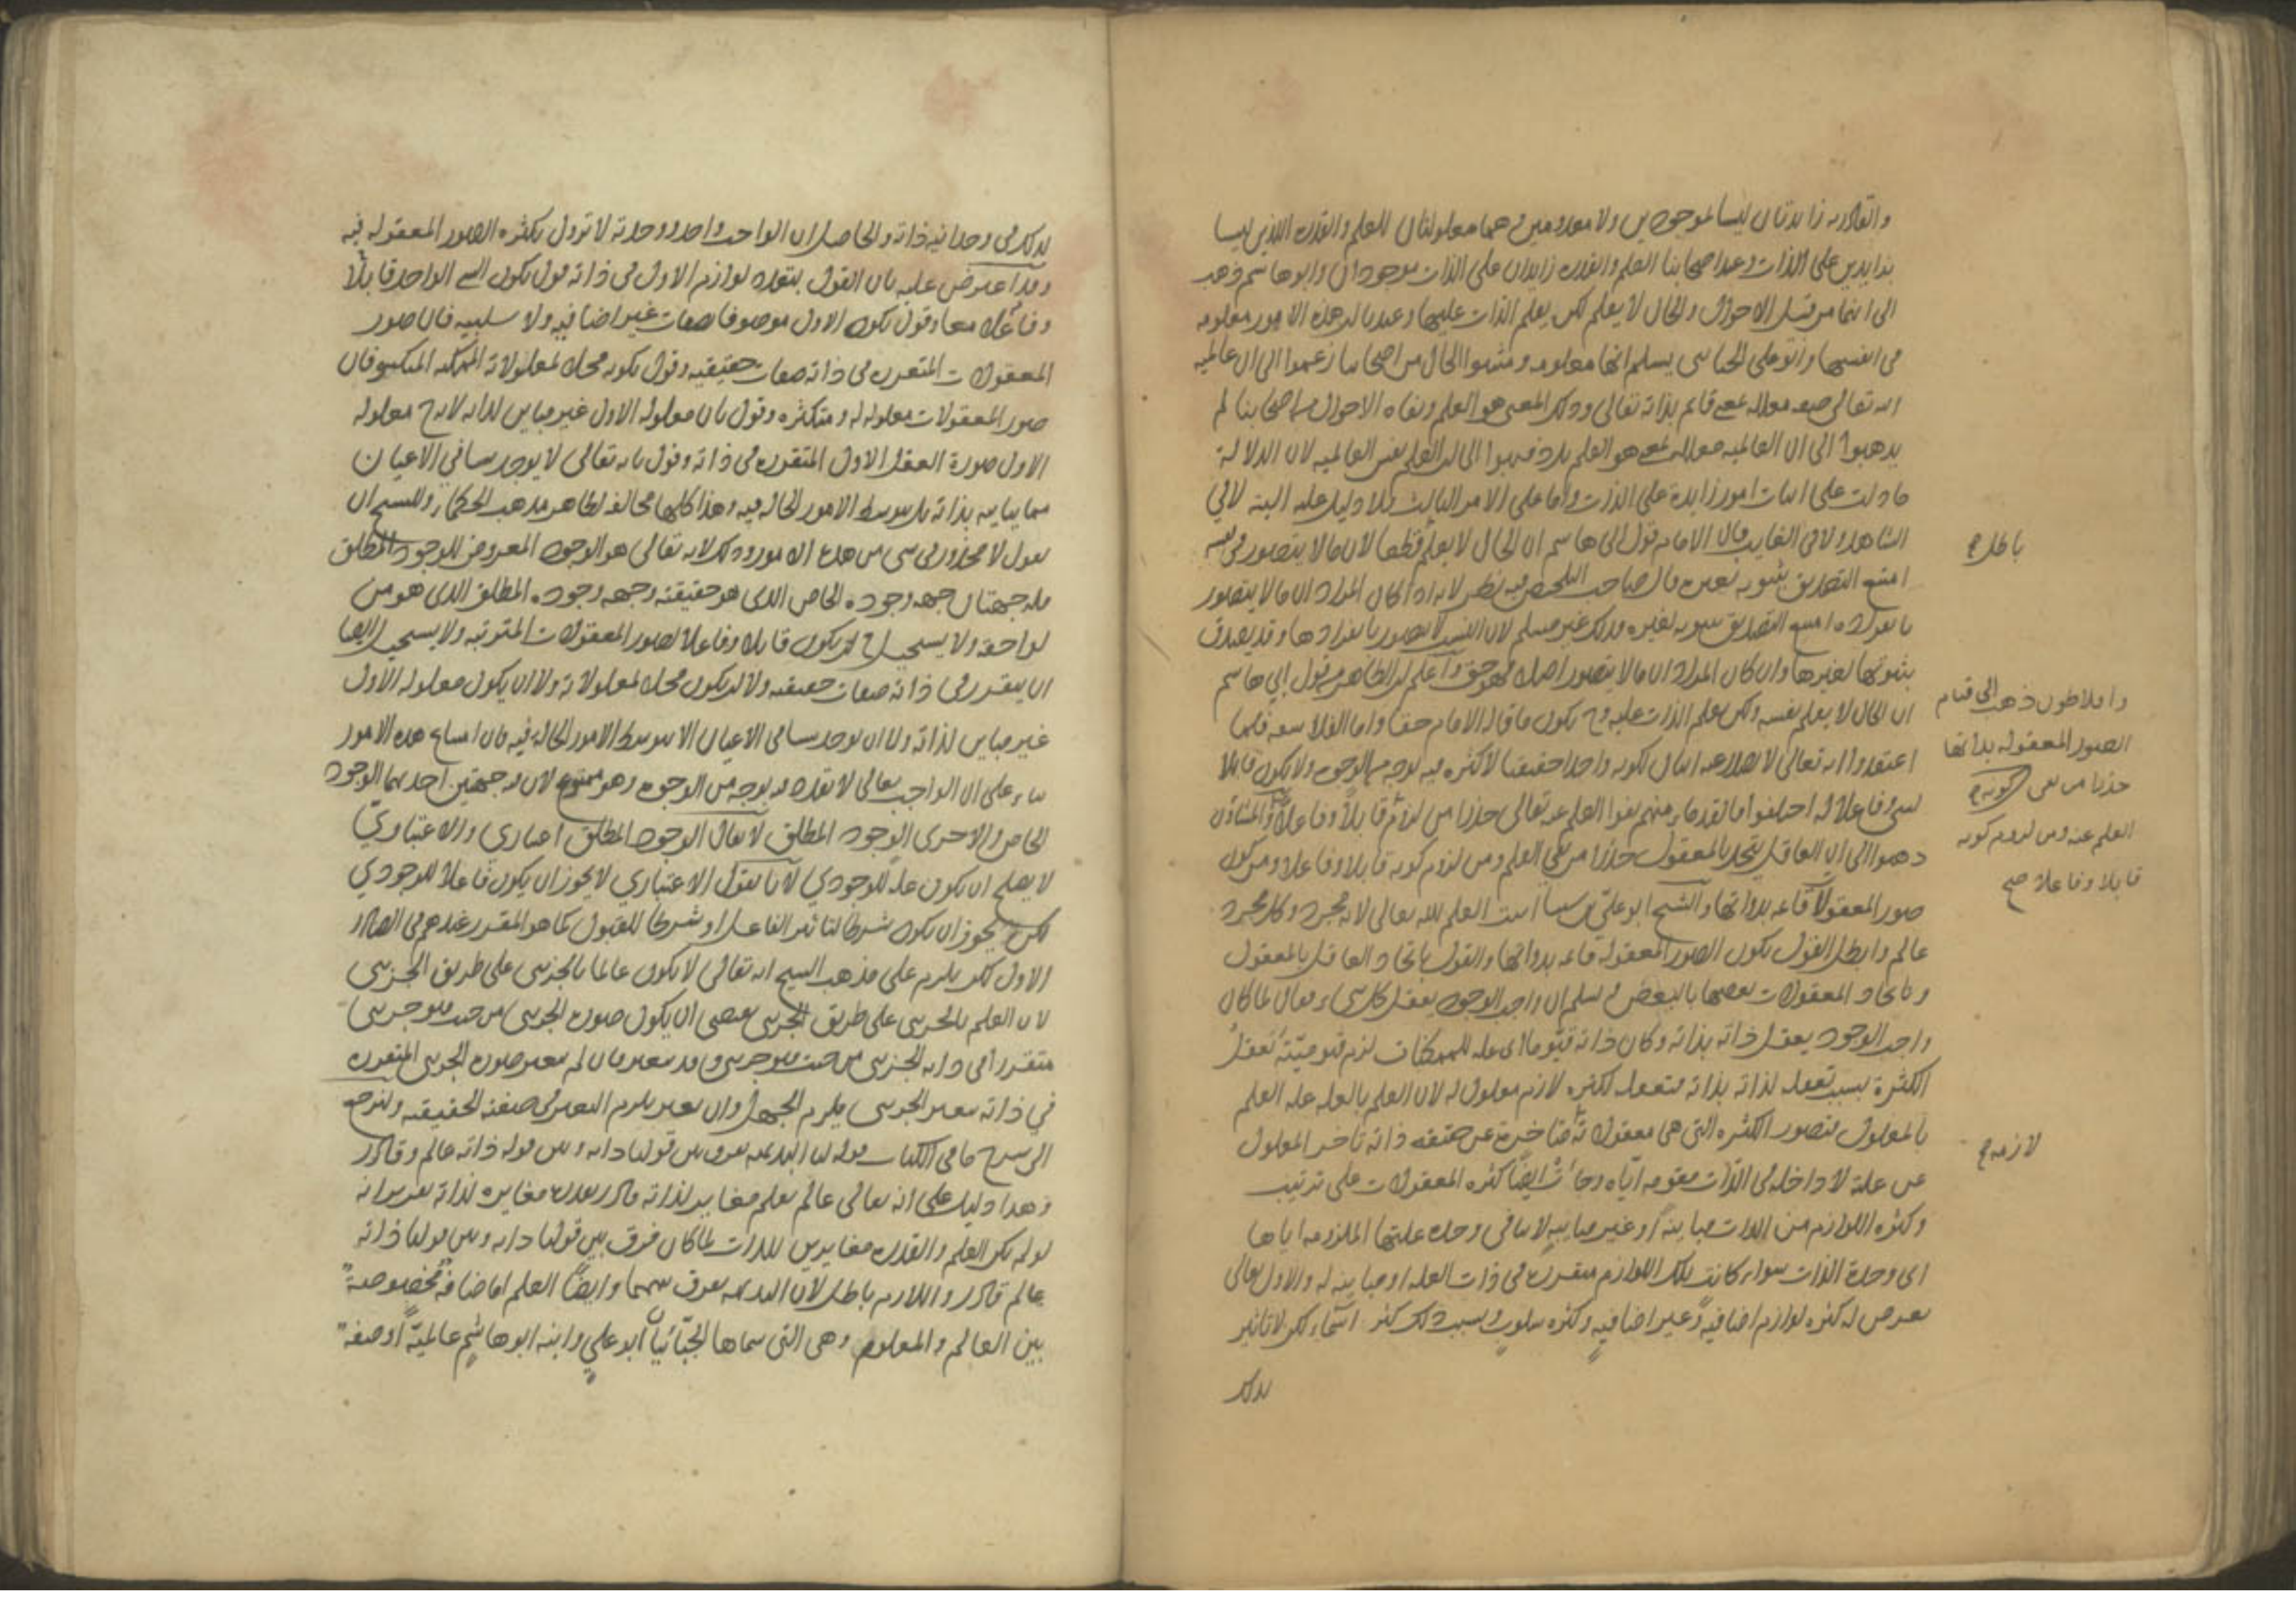 والقادرية زايدتان ليسا بموجودين ولا معدومين وهما معلولتان للعلم والقدرة اللذين ليسا
بزايدين على الذات وعند اصحابنا العلم والقدرة زايدان على الذات موجودان وابو هاشم ذهب
الى انهما من قبيل الاحوال والحال لا يعلم لكن يعلم الذات عليها وعندنا ان هذه الامور معلومة
في انفسها وابو علي الجبائي يسلم انها معلومة ومثبتوا الحال من اصحابنا زعموا الى ان عالمية
الله تعالى صفة معللة بمعنى قائم بذاته تعالى وذلك المعنى هو العلم ونفاة الاحوال من اصحابنا لم
يذهبوا الى ان العالمية معللة بمعنى هو العلم بل ذهبوا الى ان العلم نفس العالمية لان الدلالة
ما دلت على اثبات امور زايدة على الذات واما على الامر الثالث فلا دليل عليه البتة لا في
الشاهد ولا في الغايب وقال الامام قول ابي هاشم ان الحال لا يعلم قطعا لان ما لا يتصور في نفسه
باطل
امتنع التصديق بثبوته لغيره قال صاحب التلخيص فيه نظر لانه اذا كان المراد ان ما لا يتصور
بانفراده امتنع التصديق بثبوته لغيره فذلك غير مسلم لان النسب لا يتصور بانفرادها وقد يصدق
بثبوتها لغيرها وان كان المراد ان ما لا يتصور اصلا فهو حق واعلم ان الظاهر من قول ابي هاشم
ان الحال لا يعلم بنفسه ولكن يعلم الذات عليه وح يكون ما قاله الامام حقا واما الفلاسفة فلما
اعتقدوا انه تعالى لا يصدر عنه اثنان لكونه واحدا حقيقيا لا كثرة فيه بوجه من الوجوه ولا يكون قابلا
لشيء وفاعلا له اختلفوا اما القدماء منهم نفوا العلم عنه تعالى حذرا من لزوم قابلا وفاعلا والمشاؤن
ذهبوا الى ان العاقل يتحد بالمعقول حذرا من نفي العلم ومن لزوم كونه قابلا وفاعلا ومن كون
وافلاطون ذهب الى قيام
الصور المعقولة بذاتها
حذرا من نفي
العلم عنه ومن لزوم كونه
قابلا وفاعلا صح
كونه
صور المعقولات قائمة بذواتها والشيخ ابو علي بن سينا اثبت العلم لله تعالى لانه مجرد وكل مجرد
عالم وابطل القول بكون الصور المعقولة قائمة بذواتها والقول باتحاد العاقل بالمعقول
وباتحاد المعقولات بعضها بالبعض وسلم ان واجب الوجود يعقل كل شيء وقال لما كان
واجب الوجود يعقل ذاته بذاته وكان ذاته قيوما اي علة للممكنات لزم قيوميته تعقل
الكثرة بسبب تعقله لذاته بذاته فتعقله لكثرة لازم معلول له لان العلم بالعلة علة العلم
بالمعلول فتصور الكثرة التي هي معقولاته متأخرة عن حقيقة ذاته تأخر المعلول
لازمة
عن علة لا داخلة في الذات مقومة اياه وجاءت ايضا كثرة المعقولات على ترتيب
وكثرة اللوازم من الذات مباينة او غير مباينة لا ينافي وحدة علتها الملزومة اياها
اي وحدة الذات سواء كانت تلك اللوازم متقررة في ذات العلة او مباينة له والاول تعالى
يعرض له كثرة لوازم اضافية وغير اضافية وكثرة سلوب وبسبب ذلك كثر اسماء لكن لا تاثير
لذلك
لذلك في وحدانية ذاته والحاصل ان الواجب واحد ووحدته لا تزول بكثرة الصور المعقولة فيه
وقد اعترض عليه بان القول بتقرر لوازم الاول في ذاته قول بكون الشيء الواحد قابلا
وفاعلا معا وقول بكون الاول موصوفا بصفات غير اضافية ولا سلبية فان صور
المعقولات المتقررة في ذاته صفات حقيقية وقول بكونه محلا لمعلولاته الممكنة المتكثرة فان
صور المعقولات معلولة له ومتكثرة وقول بان معلوله الاول غير مباين لذاته لان ح معلوله
الاول صورة العقل الاول المتقررة في ذاته وقول بانه تعالى لا يوجد شيئا في الاعيان
مما يباينه بذاته بل بتوسط الامور الحالة فيه وهذا كلها مخالف لظاهر مذهب الحكماء وللشيخ ان
يقول لا محذور في شيء من هذه الامور وذلك لانه تعالى هو الوجود المعروض للوجود المطلق
فله جهتان جهة وجوده الخاص الذي هو حقيقته وجهة وجوده المطلق الذي هو من
لواحقه ولا يستحيل ان يكون قابلا وفاعلا لصور المعقولات المترتبة ولا يستحيل ايضا
ان يتقرر في ذاته صفات حقيقية ولا ان يكون محلا لمعلولاته ولا ان يكون معلوله الاول
غير مباين لذاته ولا ان يوجد شيئا في الاعيان الا بتوسط الامور الحالة فيه فان امتناع هذه الامور
بناء على ان الواجب تعالى لا تعدد فيه بوجه من الوجوه وهو ممنوع لان له جهتين احديهما الوجود
الخاص والاخرى الوجود المطلق لا يقال الوجود المطلق اعتباري والاعتباري
لا يصلح ان يكون علة للوجودي لانا نقول الاعتباري لا يجوز ان يكون فاعلا للوجودي
لكن يجوز ان يكون شرطا لتأثير الفاعل او شرطا للقبول كما هو المقرر عندهم في الصادر
الاول لكن يلزم على مذهب الشيخ انه تعالى لا يكون عالما بالجزئي على طريق الجزئي
لان العلم بالجزئي على طريق الجزئي يقتضي ان يكون صورة الجزئي من حيث هو جزئي
متقررة في ذاته الجزئي من حيث هو جزئي قد يتغير فان لم يتغير صورة الجزئي المتقررة
في ذاته بتغير الجزئي يلزم الجهل وان تغير يلزم التغير في صفته الحقيقية ولنرجع
الى شرح ما في الكتاب قوله لنا البديهة تفرق بين قولنا ذاته وبين قوله ذاته عالم وقادر
وهذا دليل على انه تعالى عالم بعلم مغاير لذاته قادر بقدرة مغايرة لذاته تقريره انه
لو لم يكن العلم والقدرة مغايرين للذات لما كان فرق بين قولنا ذاته وبين قولنا ذاته
عالم قادر واللازم باطل لان البديهة تفرق بينهما وايضا العلم اما اضافة مخصوصة
بين العالم والمعلوم وهي التي سماها الجبائيان ابو علي وابنه ابو هاشم عالمية او صفة